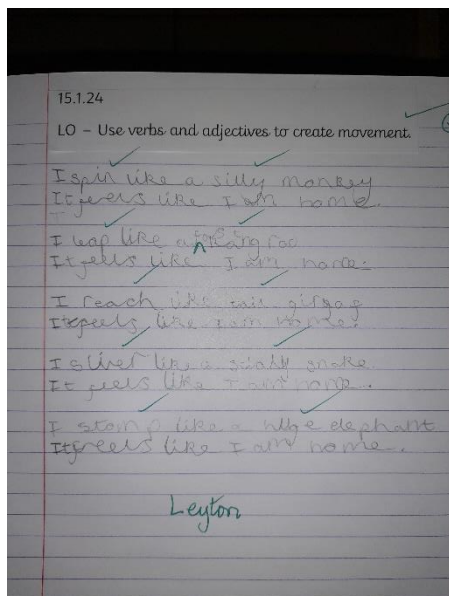 15.1.24
LO – Use verbs and adjectives to create movement.
I spin like a silly monkey
It feels like I am home.
I leap like a kangroo
It feels like I am home.
I reach like
It feels like I am home.
I sliver like a snake
It feels like I am home.
I stomp like a huge elephant
It feels like I am home.
Leyton